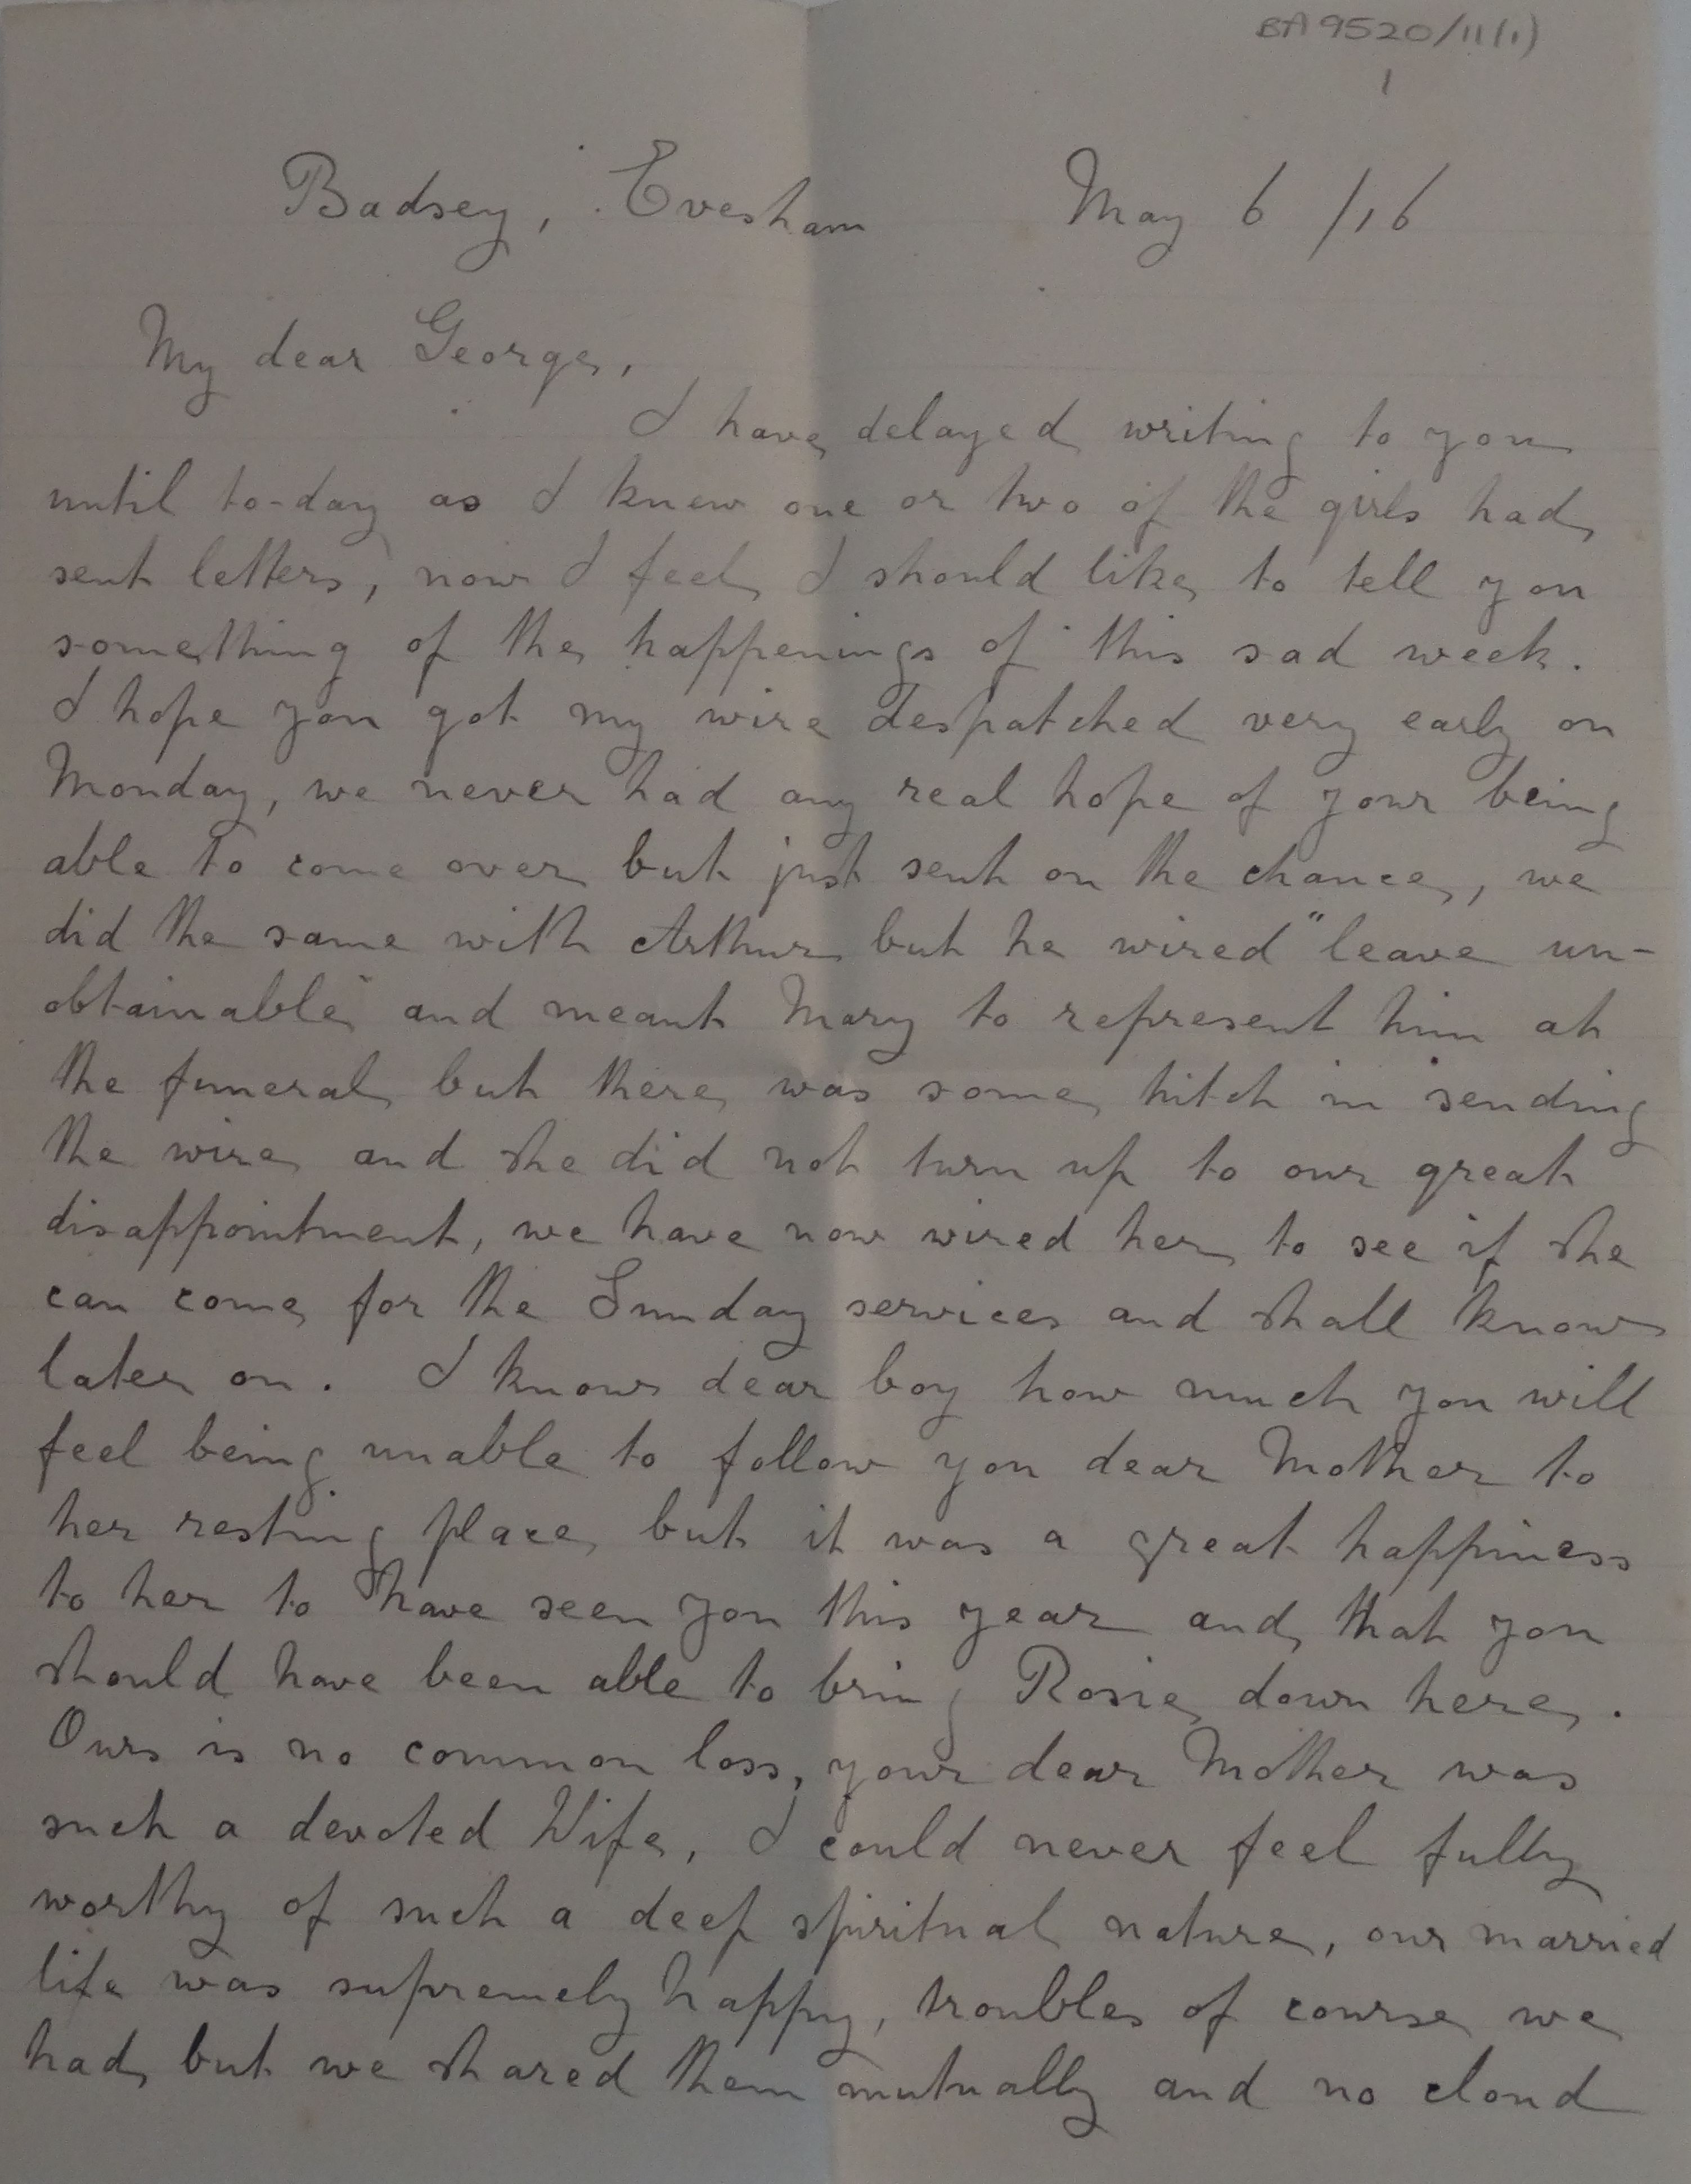 BA 9520/11(1)
1
Badsey, Evesham May 6 /16
My dear George,
I have delayed writing to you
until to-day as I knew one or two of the girls had
sent letters, now I feel I should like to tell you
something of the happenings of this sad week.
I hope you got my wire despatched very early on
Monday, we never had any real hope of your being
able to come over but just sent on the chance, we
did the same with Arthur but he wired "leave un-
obtainable" and meant Mary to represent him at
the funeral but there was some hitch in sending
the wire and she did not turn up to our great
disappointment, we have now wired her to see if she
can come for the Sunday services and shall know
later on. I know dear boy how much you will
feel being unable to follow you dear Mother to
her resting place but it was a great happiness
to her to have seen you this year and that you
should have been able to bring Rosie down here.
Ours is no common loss, your dear Mother was
such a devoted Wife, I could never feel fully
worthy of such a deep spiritual nature, our married
life was supremely happy, troubles of course we
had but we shared them mutually and no cloud